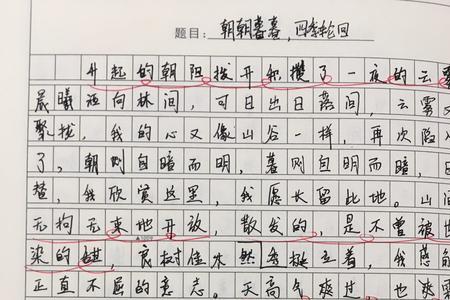 题目：朝朝暮暮，四季轮回
升起的朝阳拨开积攒了一夜的云雾
晨曦洒向林间，可日出日落间，云雾又
聚拢，我的心又像山谷一样，再次陷入
了，朝则自暗而明，暮则自明而暗，日
替，我欣赏这里，我愿长留此地。山间
无拘无束地开放，散发的，是不曾被世
染的 良树佳木然 立着，我感
正直不屈的意志。天高气爽过 也飒